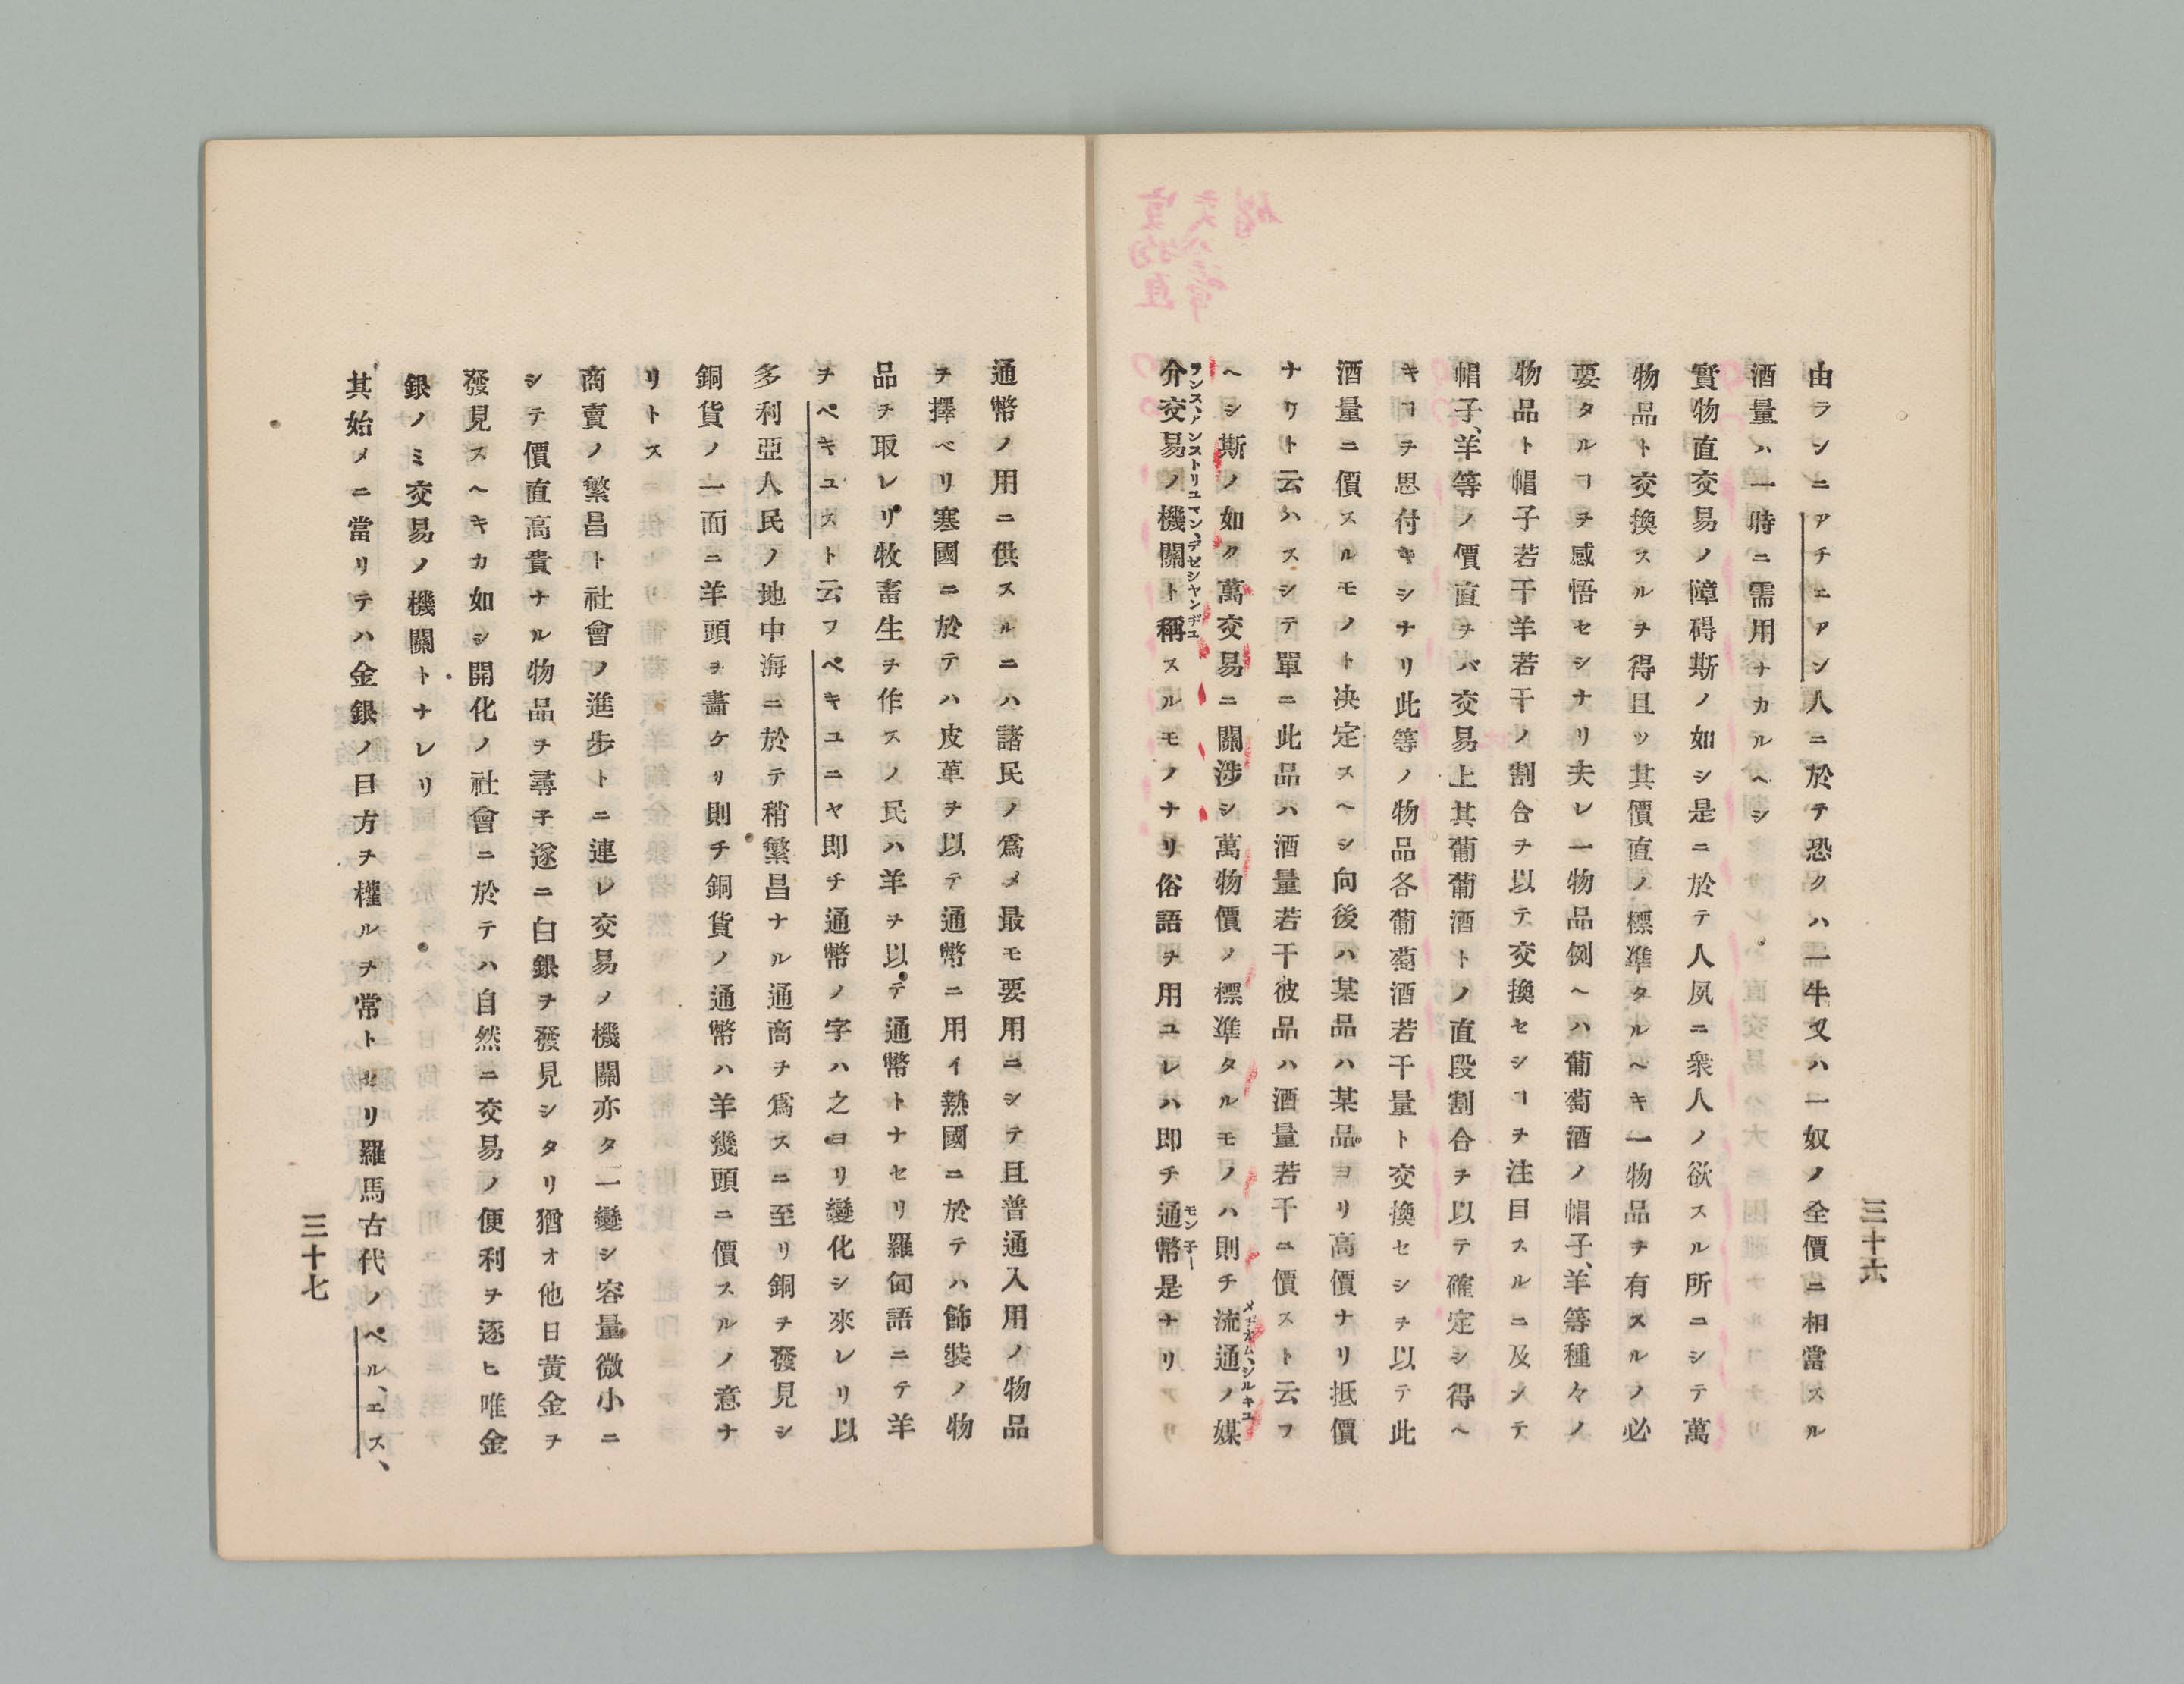 三十六
由ラシニアチェアン人ニ於テ恐クハ一牛又ハ一奴ノ全價ニ相當スル
酒量ハ一時ニ需用ナカルヘシ
實物直交易ノ障碍斯ノ如シ是ニ於テ人夙ニ衆人ノ欲スル所ニシテ萬
物品ト交換スルヲ得且ッ其價直ノ標凖タルヘキ一物品ヲ有スルノ必
要タルヿヲ感悟セシナリ夫レ一物品例ヘハ葡萄酒ノ帽子、羊等種々ノ
物品ト帽子若干羊若干ノ割合ヲ以テ交換セシヿヲ注目スルニ及ンテ
帽子、羊等ノ價直ヲバ交易上其葡葡酒トノ直段割合ヲ以テ確定シ得ヘ
キヿヲ思付キシナリ此等ノ物品各葡萄酒若干量ト交換セシヲ以テ此
酒量ニ價スルモノト决定スヘシ向後ハ某品ハ某品ヨリ高價ナリ抵價
ナリト云ハスシテ單ニ此品ハ酒量若干彼品ハ酒量若干ニ價スト云フ
ヘシ斯ノ如ク萬交易ニ關渉シ萬物價ノ標凖タルモノハ則チ流通ノ媒
介交易ノ機關ト稱スルモノナリ俗語ヲ用ユレハ即チ通幣是ナリ
モン子ー
通幣ノ用ニ供スルニハ諸民ノ爲メ最モ要用ニシテ且普通入用ノ物品
ヲ擇ベリ寒國ニ於テハ皮革ヲ以テ通幣ニ用イ熱國ニ於テハ飾裝ノ物
品ヲ取レリ牧畜生ヲ作スノ民ハ羊ヲ以テ通幣トナセリ羅甸語ニテ羊
ヲペキユスト云フペキユニヤ即チ通幣ノ字ハ之ヨリ變化シ來レリ以
多利亞人民ノ地中海ニ於テ稍繁昌ナル通商ヲ爲スニ至リ銅ヲ發見シ
銅貨ノ一面ニ羊頭ヲ畵ケリ則チ銅貨ノ通幣ハ羊幾頭ニ價スルノ意ナ
リトス
商賣ノ繁昌ト社會ノ進歩トニ連レ交易ノ機關亦タ一變シ容量微小ニ
シテ價直高貴ナル物品ヲ尋子遂ニ白銀ヲ發見シタリ猶オ他日黄金ヲ
發見スヘキカ如シ開化ノ社會ニ於テハ自然ニ交易ノ便利ヲ逐ヒ唯金
銀ノミ交易ノ機關トナレリ
其始メニ當リテハ金銀ノ目方ヲ權ルヲ常トセリ羅馬古代ノペル、エス、
三十七